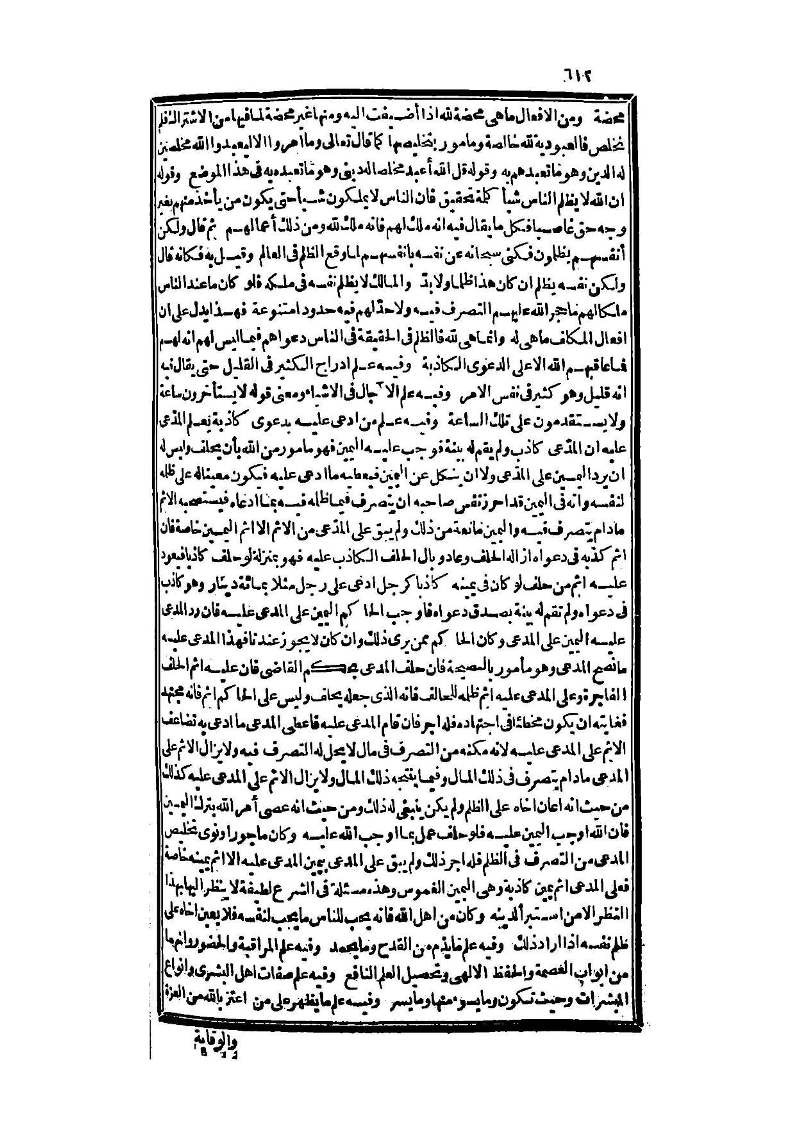 ٦١٢
محضة ومن الافعال ماهى محضة لله اذا أضيفت اليه ومنها غير محضة لما فيها من الاشتراك فلم
تخلص فالعبودية لله خالصة ومأمور بتخليصها كما قال تعالى وما أمروا الا ليعبدوا الله مخلصين
له الدين وهو ما تعبدهم به وقوله قل الله أعبد مخلصا له دينى وهو ما تعبده به فى هذا الموضع وقوله
ان الله لا يظلم الناس شيأ كلمة تحقيق فان الناس لا يملكون شيأ حتى يكون من يأخذ منهم بغير
وجه حق غاصبا فكل ما يقال فيه انه ملك لهم فانه ملك لله ومن ذلك أعمالهم ثم قال ولكن
أنفسهم يظلمون فكنى سبحانه عن نفسه بأنفسهم لما وقع الظلم فى العالم وقيل به فكانه قال
ولكن نفسه يظلم ان كان هذا ظلما ولا بد والمالك لا يظلم نفسه فى ملكه فلو كان ما عند الناس
ملكا لهم ما حجر الله عليهم التصرف فيه ولا حد لهم فيه حدودا متنوعة فهذا يدل على ان
افعال المكلف ماهى له وانما هى لله فالظلم فى الحقيقة فى الناس دعواهم فيما ليس لهم انه لهم
فما عاقبهم الله الا على الدعوى الكاذبة وفيه علم ادراج الكثير فى القليل حتى يقال فيه
انه قليل وهو كثير فى نفس الامر وفيه علم الآجال فى الاشياء ومعنى قوله لا يستأخرون ساعة
ولا يستقدمون على تلك الساعة وفيه علم من ادعى عليه بدعوى كاذبة يعلم المدعى
عليه ان المدعى كاذب ولم يقم له بينة فوجب عليه اليمين فهو مأمور من الله بأن يحلف وليس له
ان يرد اليمين على المدعى ولا ان ينكل عن اليمين فيعطيه ما ادعى عليه فيكون معينا له على ظلمه
لنفسه وانه فى اليمين قد احرز نفس صاحبه ان يتصرف فيما ظلمه فيه بما ادعاه فيستصحبه الاثم
مادام يتصرف فيه واليمين مانعة من ذلك ولم يبق على المدعى من الاثم الا اثم اليمين خاصة فان
اثم كذبه فى دعواه ازاله الحلف وعاد وبال الحلف الكاذب عليه فهو بمنزلة لو حلف كاذبا فيعود
عليه اثم من حلف لو كان فى يمينه كاذبا كرجل ادعى على رجل مثلا بمائة دينار وهو كاذب
فى دعواه ولم تقم له بينة بصدق دعواه فاوجب الحاكم اليمين على المدعى عليه فان رد المدعى
عليه اليمين على المدعى وكان الحاكم ممن يرى ذلك وان كان لا يجوز عندنا فهذا المدعى عليه
ما نصح المدعى وهو مأمور بالنصيحة فان حلف المدعى بحكم القاضى فان عليه اثم الحلف
الفاجرة وعلى المدعى عليه اثم ظلمه للحالف فانه الذى جعله يحلف وليس على الحاكم اثم فانه مجتهد
فغايته ان يكون مخطئا فى اجتهاده فله اجر فان قام المدعى عليه فاعطى المدعى ما ادعى به تضاعف
الاثم على المدعى عليه لانه مكنه من التصرف فى مال لا يحل له التصرف فيه ولا يزال الاثم على
المدعى مادام يتصرف فى ذلك المال وفيما ينتجه ذلك المال ولا يزال الاثم على المدعى عليه كذلك
من حيث انه اعان اخاه على الظلم ولم يكن ينبغى له ذلك ومن حيث انه عصى أمر الله بترك اليمين
فان الله اوجب اليمين عليه فلو حلف عمل بما اوجب الله عليه وكان مأجورا ونوى تخليص
المدعى من التصرف فى الظلم فله اجر ذلك ولم يبق على المدعى بيمين المدعى عليه الا اثم يمينه خاصة
فعلى المدعى اثم يمين كاذبة وهى اليمين الغموس وهذه مسئلة فى الشرع لطيفة لا ينظر اليها بهذا
النظر الا من استبرأ لدينه وكان من اهل الله فانه يحب للناس ما يحب لنفسه فلا يعين اخاه على
ظلم نفسه اذا اراد ذلك وفيه علم ما يذم من القدح وما يحمد وفيه علم المراقبة والحضور وانهما
من ابواب العصمة والحفظ الالهى وتحصيل العلم النافع وفيه علم صفات اهل البشرى وانواع
المبشرات وحيث تكون وما يسوء منها وما يسر وفيه علم ما يظهر على من اعتز بالله من العزة
والوقاية